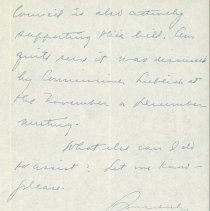 Council is also actively
supporting this bill. Am
quite sure it was discussed
by Commissioner
at
the November or December
meeting.
What else can I do
to assist? Let me know
please.